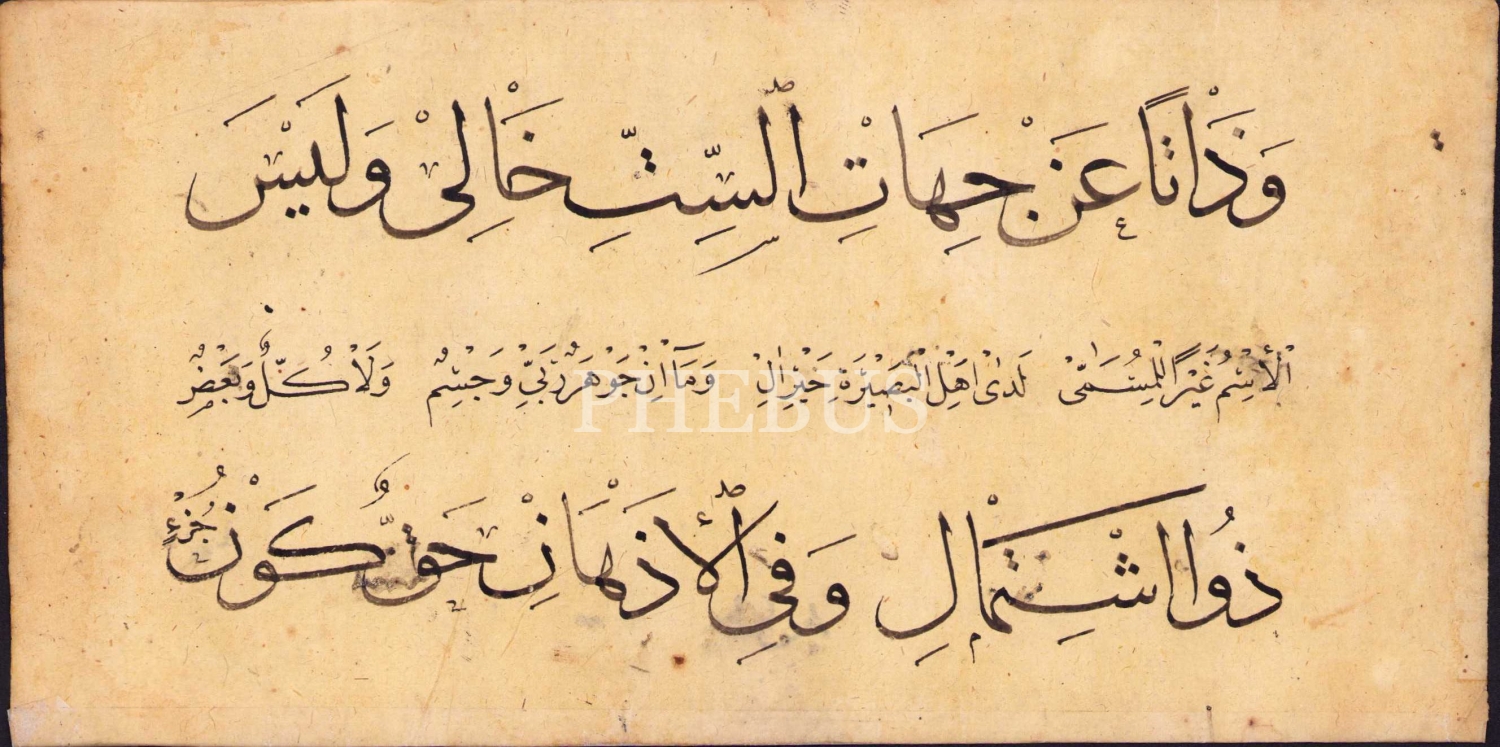 وَذَاتًا عَنْ جِهَاتِ ٱلسِّتِّ خَالِيْ وَلَيْسَ
ٱلْأِسْمُ غَيْرًا لِلْمُسَمّٰى لَدٰى اَهْلِ الْبَصِيْرَةِ خَيْرِ اٰلِ وَمَآ اِنْ جَوْهَرٌ رَبِّيْ وَجِسْمٌ وَلَا كُلٌّ وَبَعْضٌ
ذُوا اشْتِمَالِ وَفِي ٱلْأَذْهَانِ حَقٌّ كَوْنُ جُزْءٍ
PHEBUS